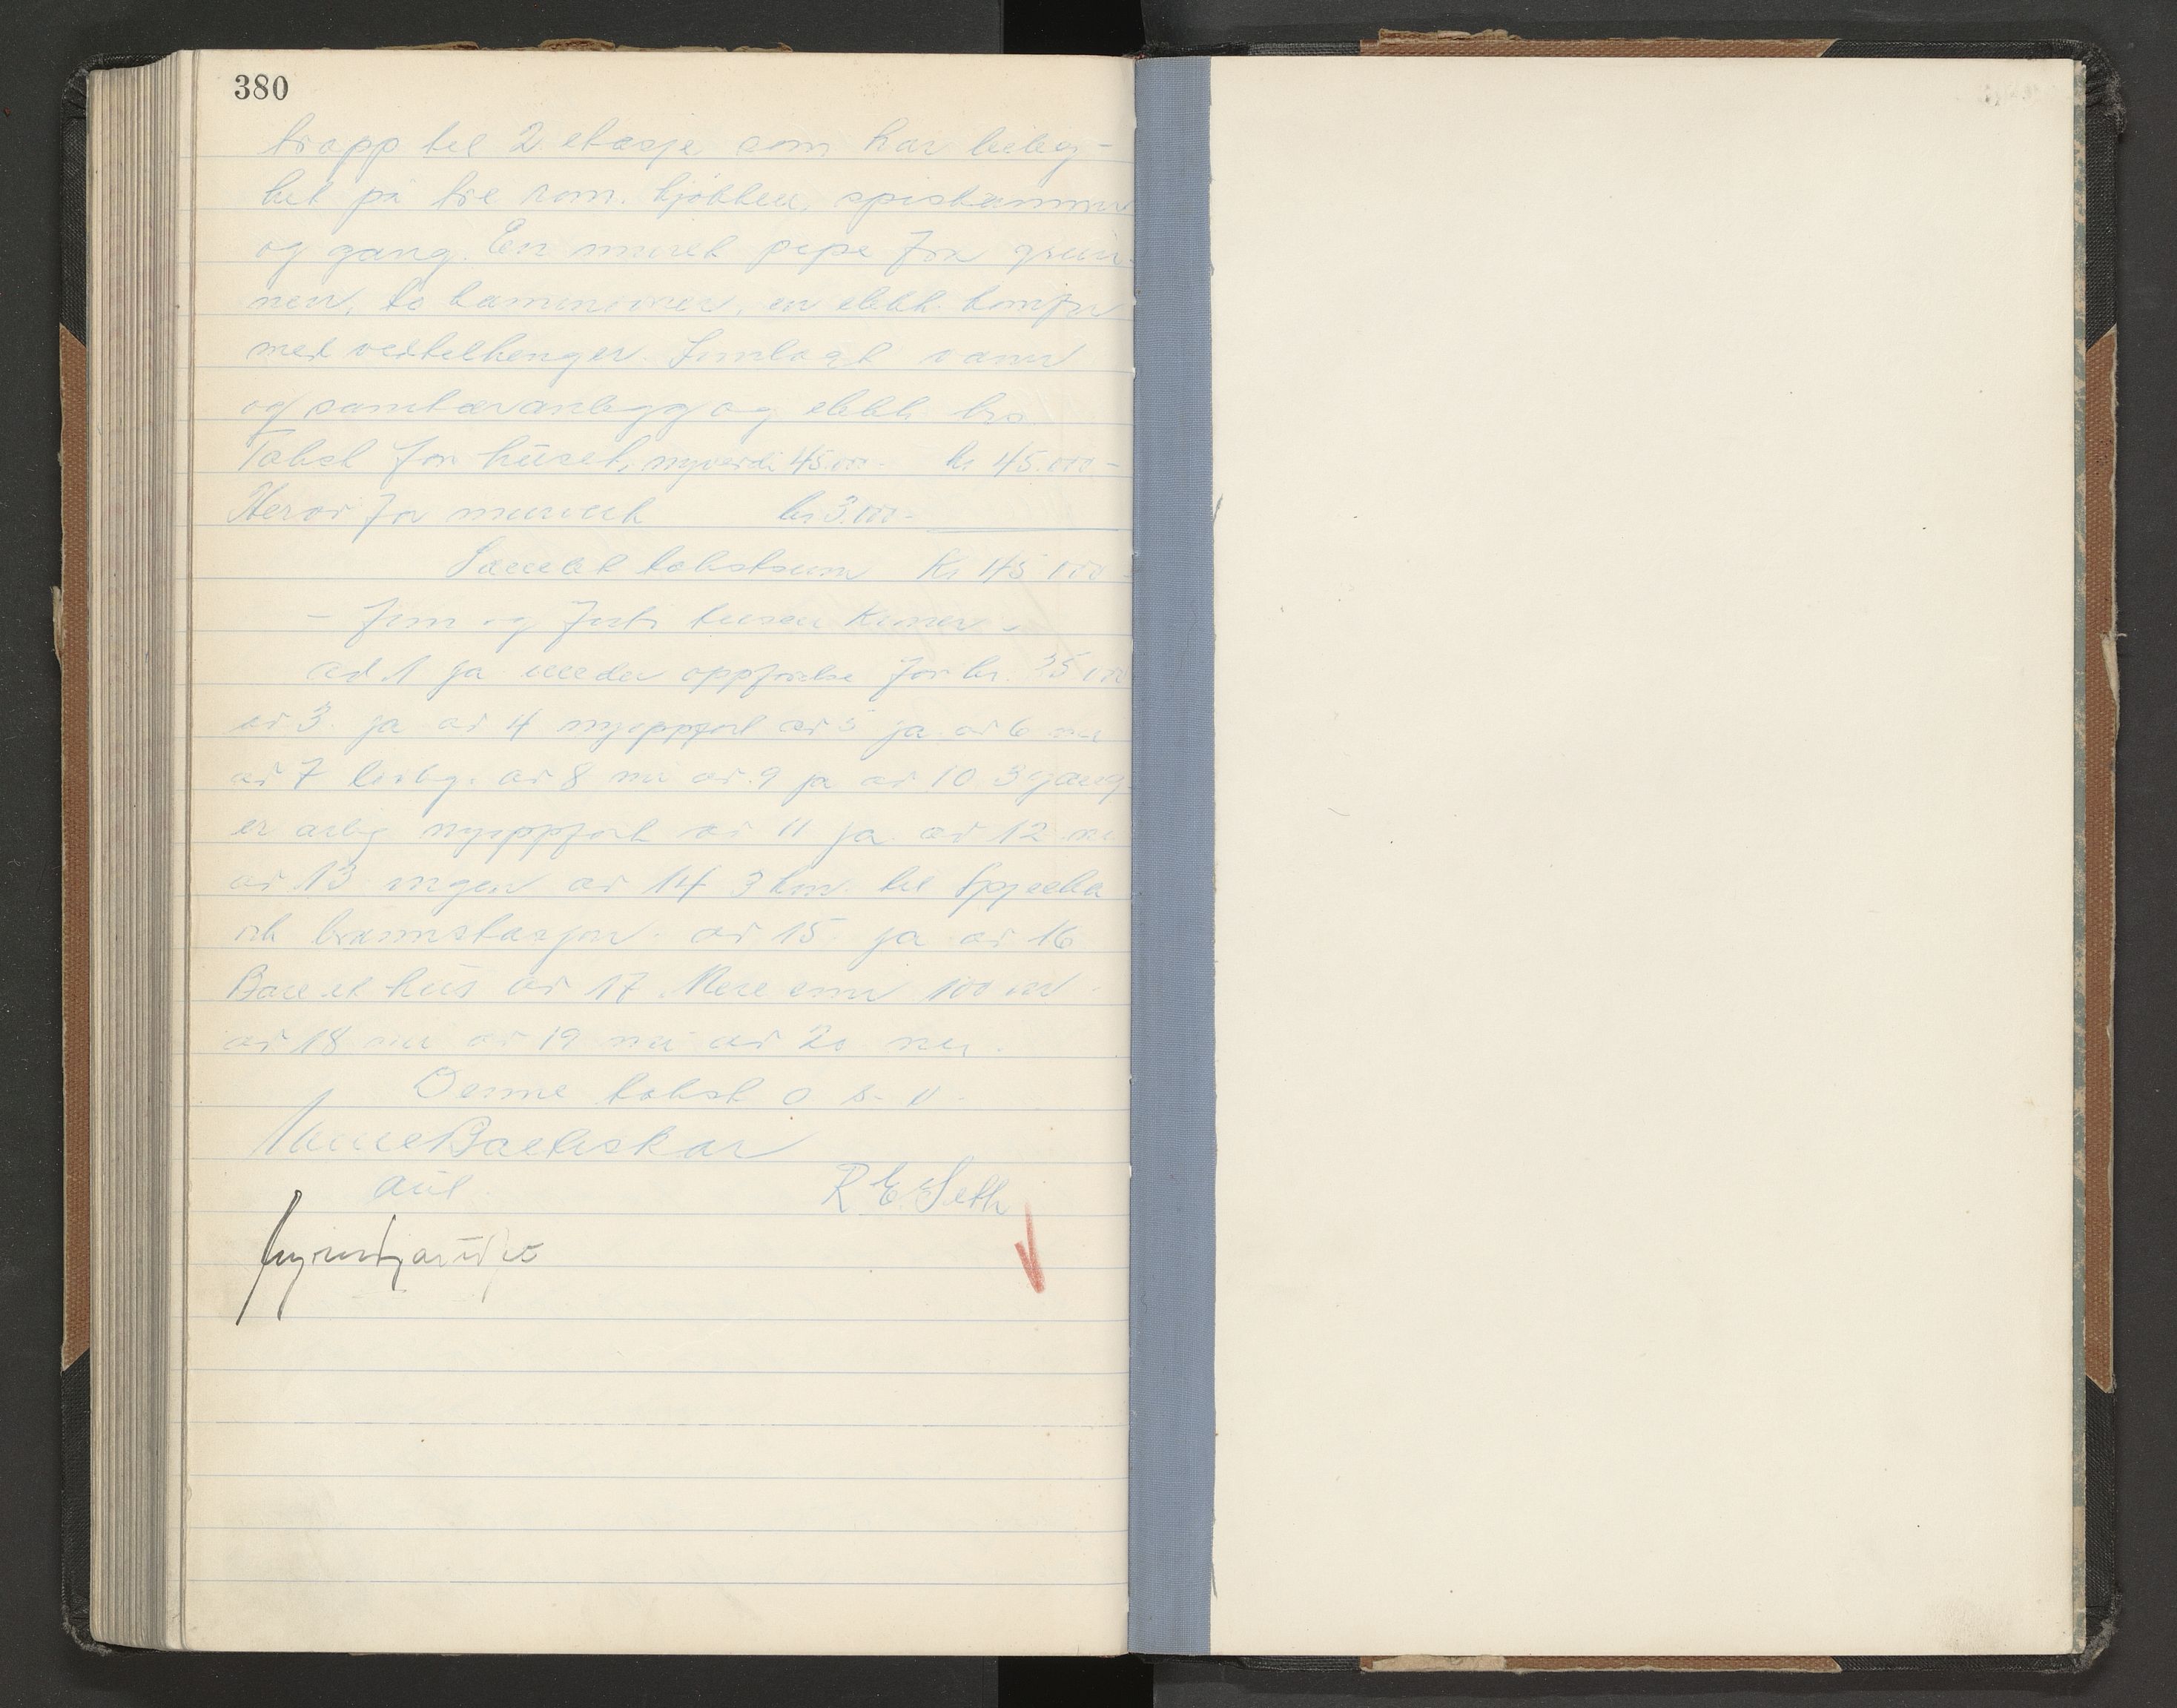 380
trapp til 2. etasje som har leilig-
het på tre rom. kjøkken, spiskammer
og gang. En muret pipe fra grun-
nen, to kaminovner, en elekk. komfyr
med vedtilhenger. Innlagt vann
og sanitæranlegg og elekk. lys.
Takst for huset, nyverdi 45.000.- kr 45.000-
Herav for murverk kr 3.000-
Samlet takstsum Kr 45.000-
- Førti og fem tusen kroner -
ad 1 ja under oppførelse for kr. 35.000
ad 3. ja ad 4 nyoppført ad 5 ja ad 6 nei
ad 7 leilig. ad 8 nei ad. 9 ja ad. 10 3 gang-
er årlig nyoppført ad 11 ja ad 12 nei
ad 13 ingen ad 14 3 km. til
brannstasjon. ad 15 ja ad 16
Bare et hus ad 17 Mere enn 100 m
ad 18 nei ad 19 nei ad 20 nei.
Denne takst o. s. v.
R E Seth